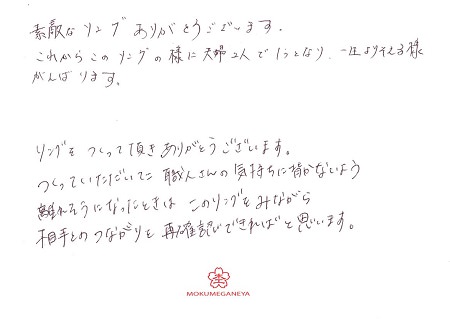 素敵なリングありがとうございます。
これからこのリングの様に夫婦2人で1つとなり、一生よりそえる様
がんばります。
リングをつくって頂きありがとうございます。
つくっていただいてこ職人さんの気持ちに背かないよう
離れそうになったときは このリングをみながら
相手とのつながりを再確認できればと思います。
杢
MOKUMEGANEYA